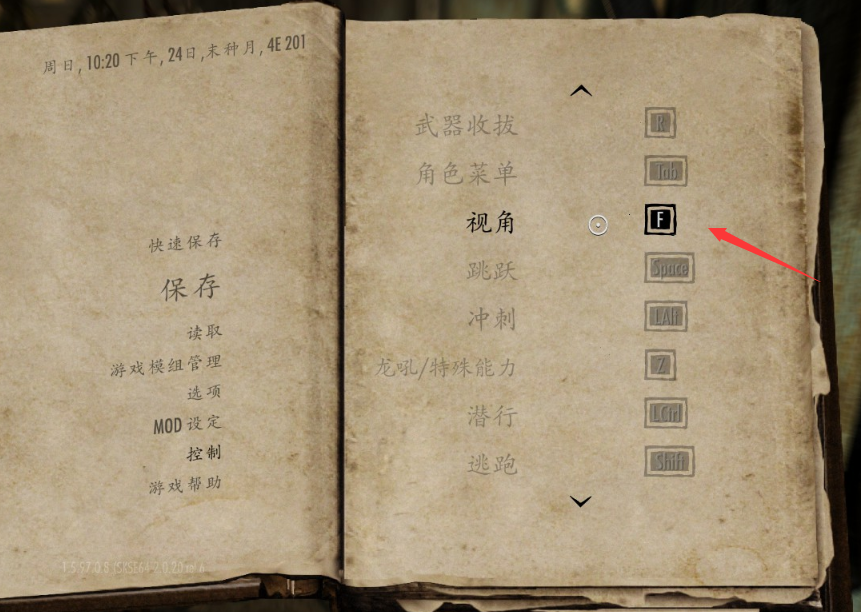 周日, 10:20 下午, 24日, 末种月, 4E 201
快速保存
保存
读取
游戏模组管理
选项
MOD 设定
控制
游戏帮助
武器收拔 R
角色菜单 Tab
视角 F
跳跃 Space
冲刺 LAlt
龙吼/特殊能力 Z
潜行 LCtrl
逃跑 Shift